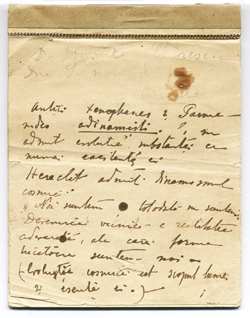 Antici Xenophanes și Parme-
nides adinamiști. Ei nu
admit evoluția substanței ci
numai existența ei
Heraclit admite dinamismul
cosmic:
„Noi suntem totodată nu suntem
Devenirea vecinică e realitatea
adevărată, ale cărei forme
trecătoare suntem noi =
(Evoluția cosmică est scopul lumei
și esența ei.)